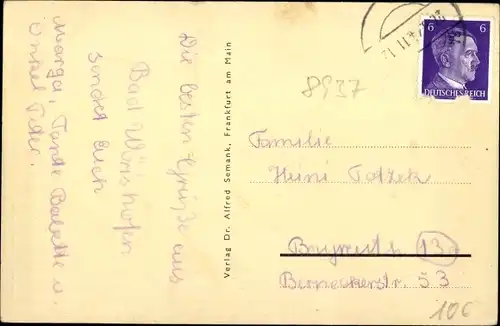 Die besten Grüße aus
Bad Wörishofen
sendet Euch
Marga, Tante Babette u.
Onkel Peter.
Verlag Dr. Alfred Semank, Frankfurt am Main
8937
6 6
DEUTSCHES REICH
Familie
Heini
Bayreuth 13a
Berneckerstr. 53
106